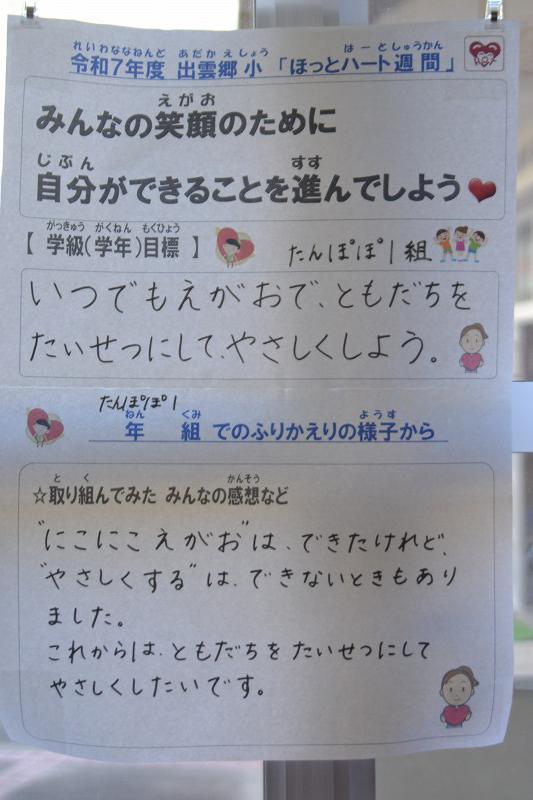 れいわななねんど あだかえしょう はーとしゅうかん
令和7年度 出雲郷小 「ほっとハート週間」
えがお
みんなの笑顔のために
じぶん すす
自分ができることを進んでしよう
がっきゅう がくねん もくひょう
【 学級(学年)目標 】 たんぽぽ1組
いつでもえがおで、ともだちを
たいせつにして、やさしくしよう。
たんぽぽ1
ねん くみ ようす
年 組 でのふりかえりの様子から
と く かんそう
☆取り組んでみた みんなの感想など
"にこにこえがお"は、できたけれど、
"やさしくする"は、できないときもあり
ました。
これからは、ともだちをたいせつにして
やさしくしたいです。